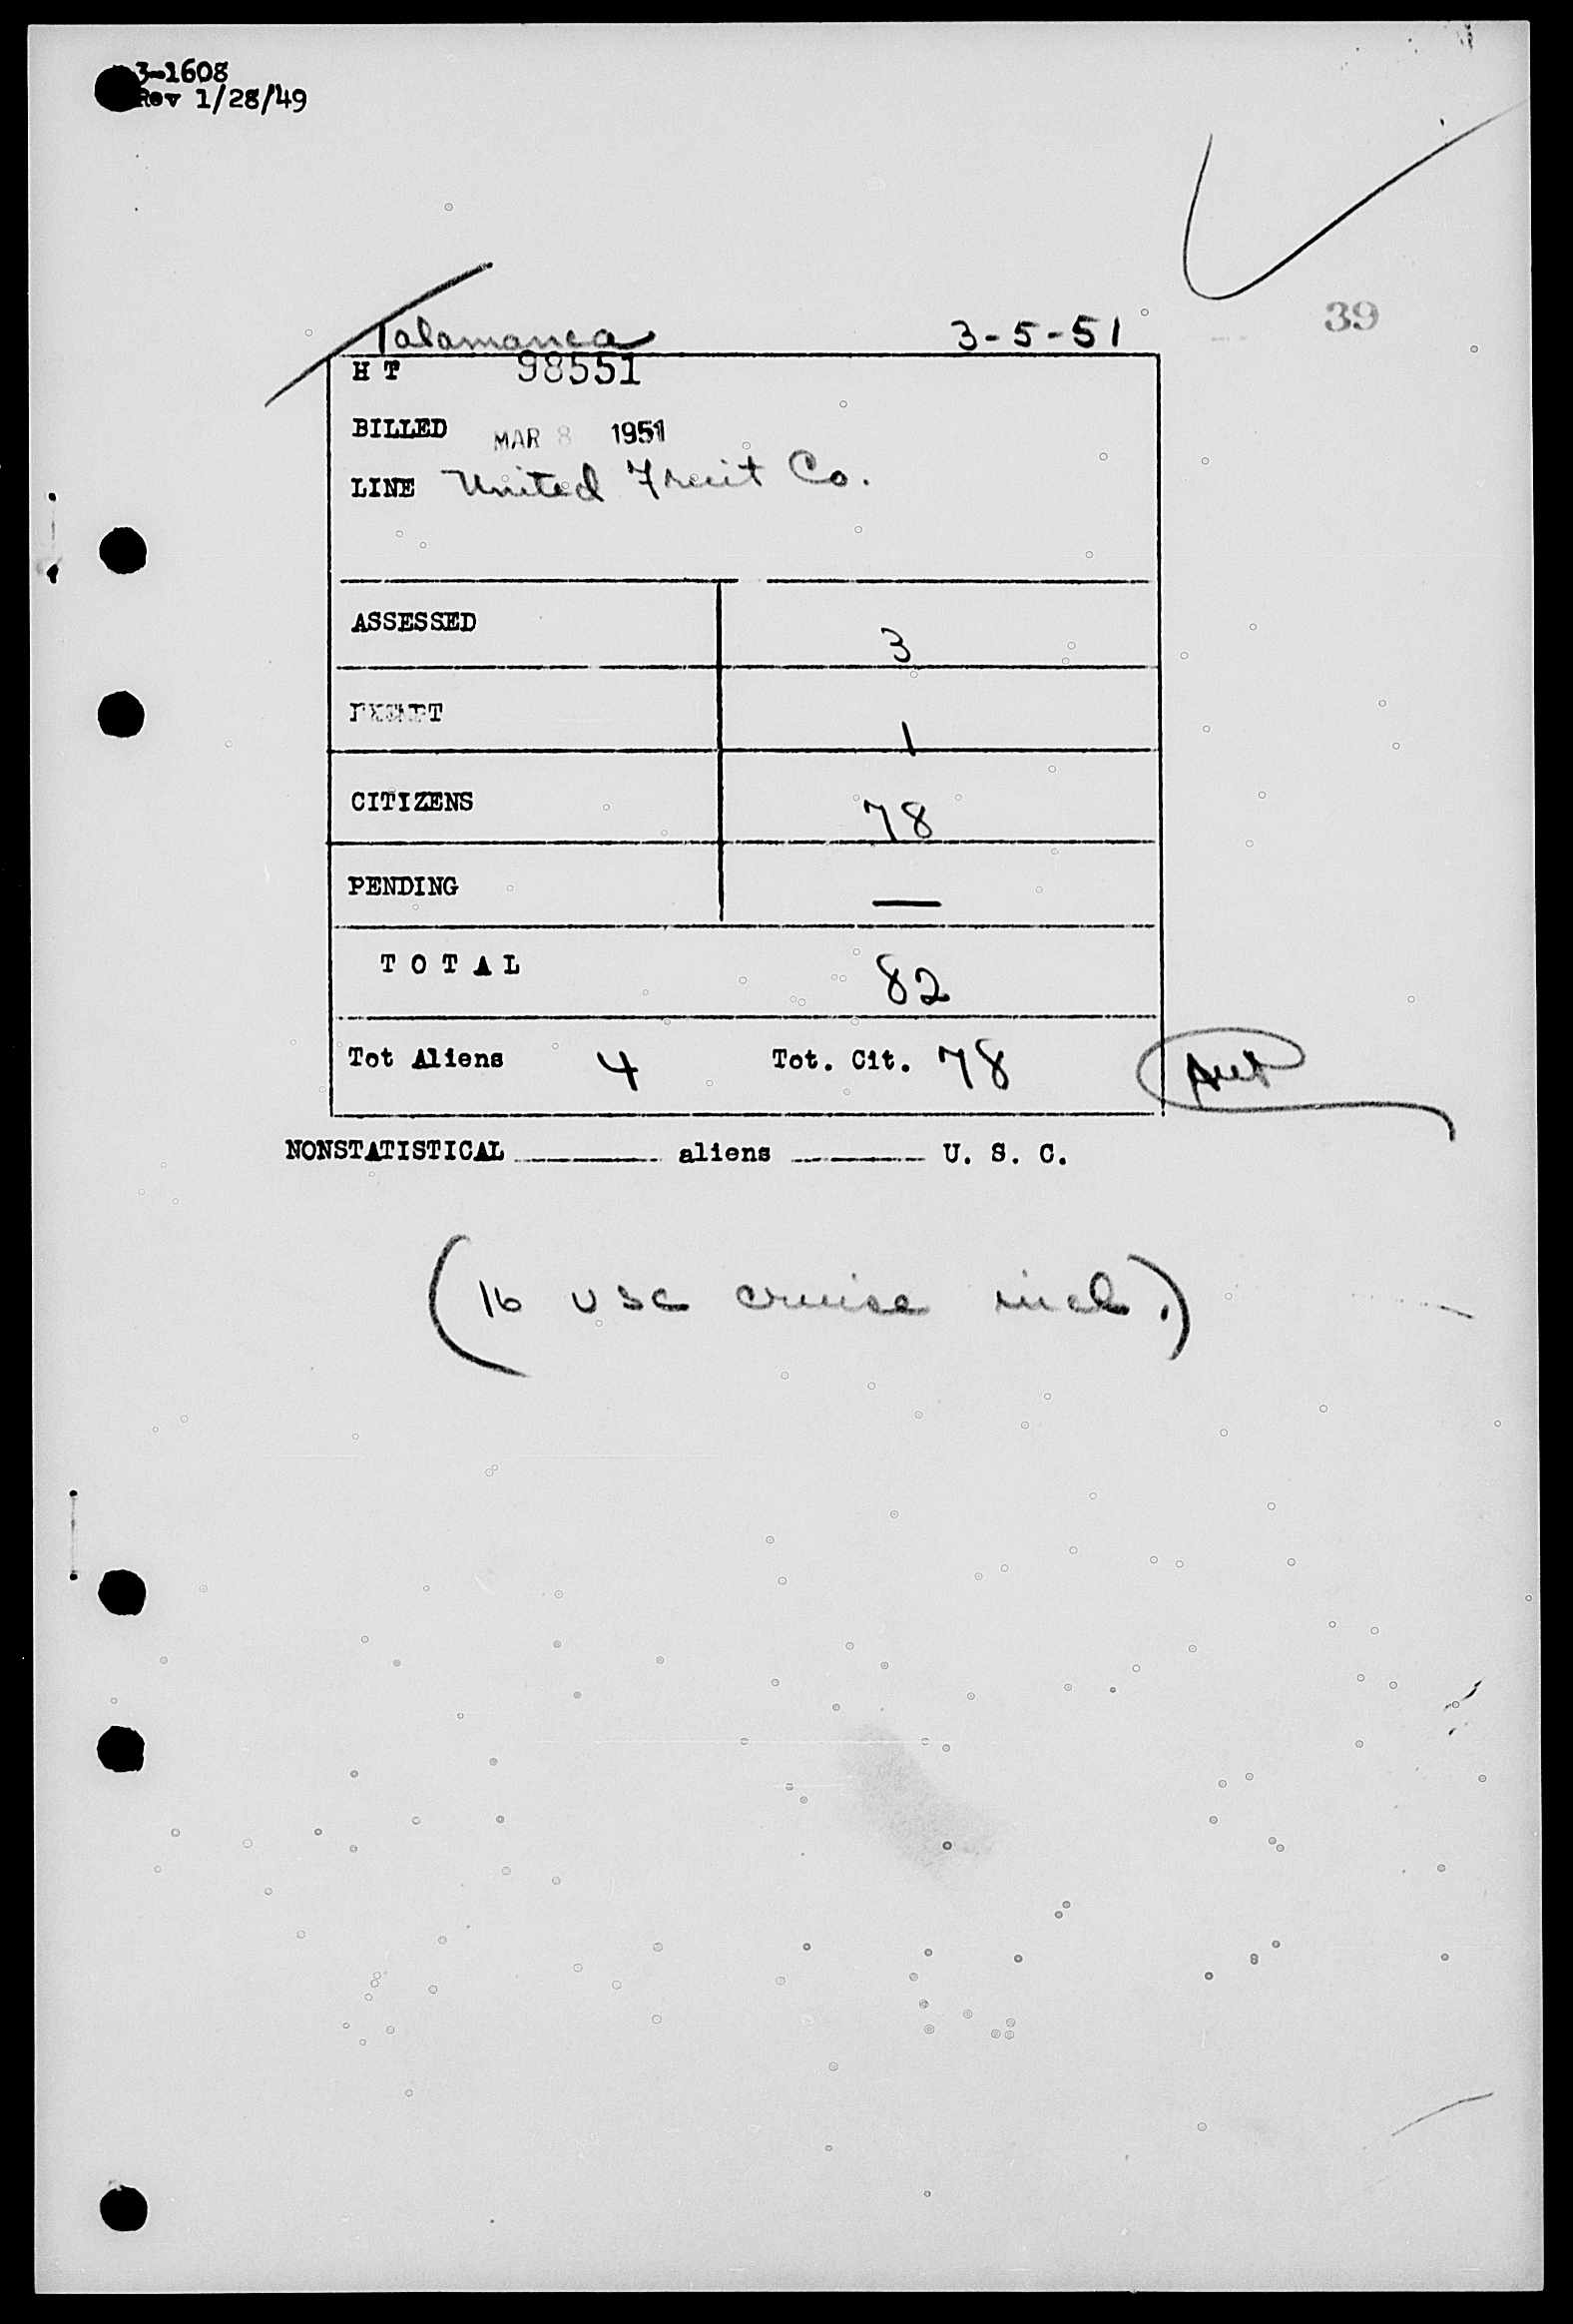 3-1608
Rev 1/28/49
39
Talamanca 3-5-51
H T 98551
BILLED MAR 8 1951
LINE United Fruit Co.
ASSESSED 3
EXEMPT 1
CITIZENS 78
PENDING —
T O T A L 82
Tot Aliens 4 Tot. Cit. 78
NONSTATISTICAL ______ aliens ______ U. S. C.
(16 USC cruise incl.)